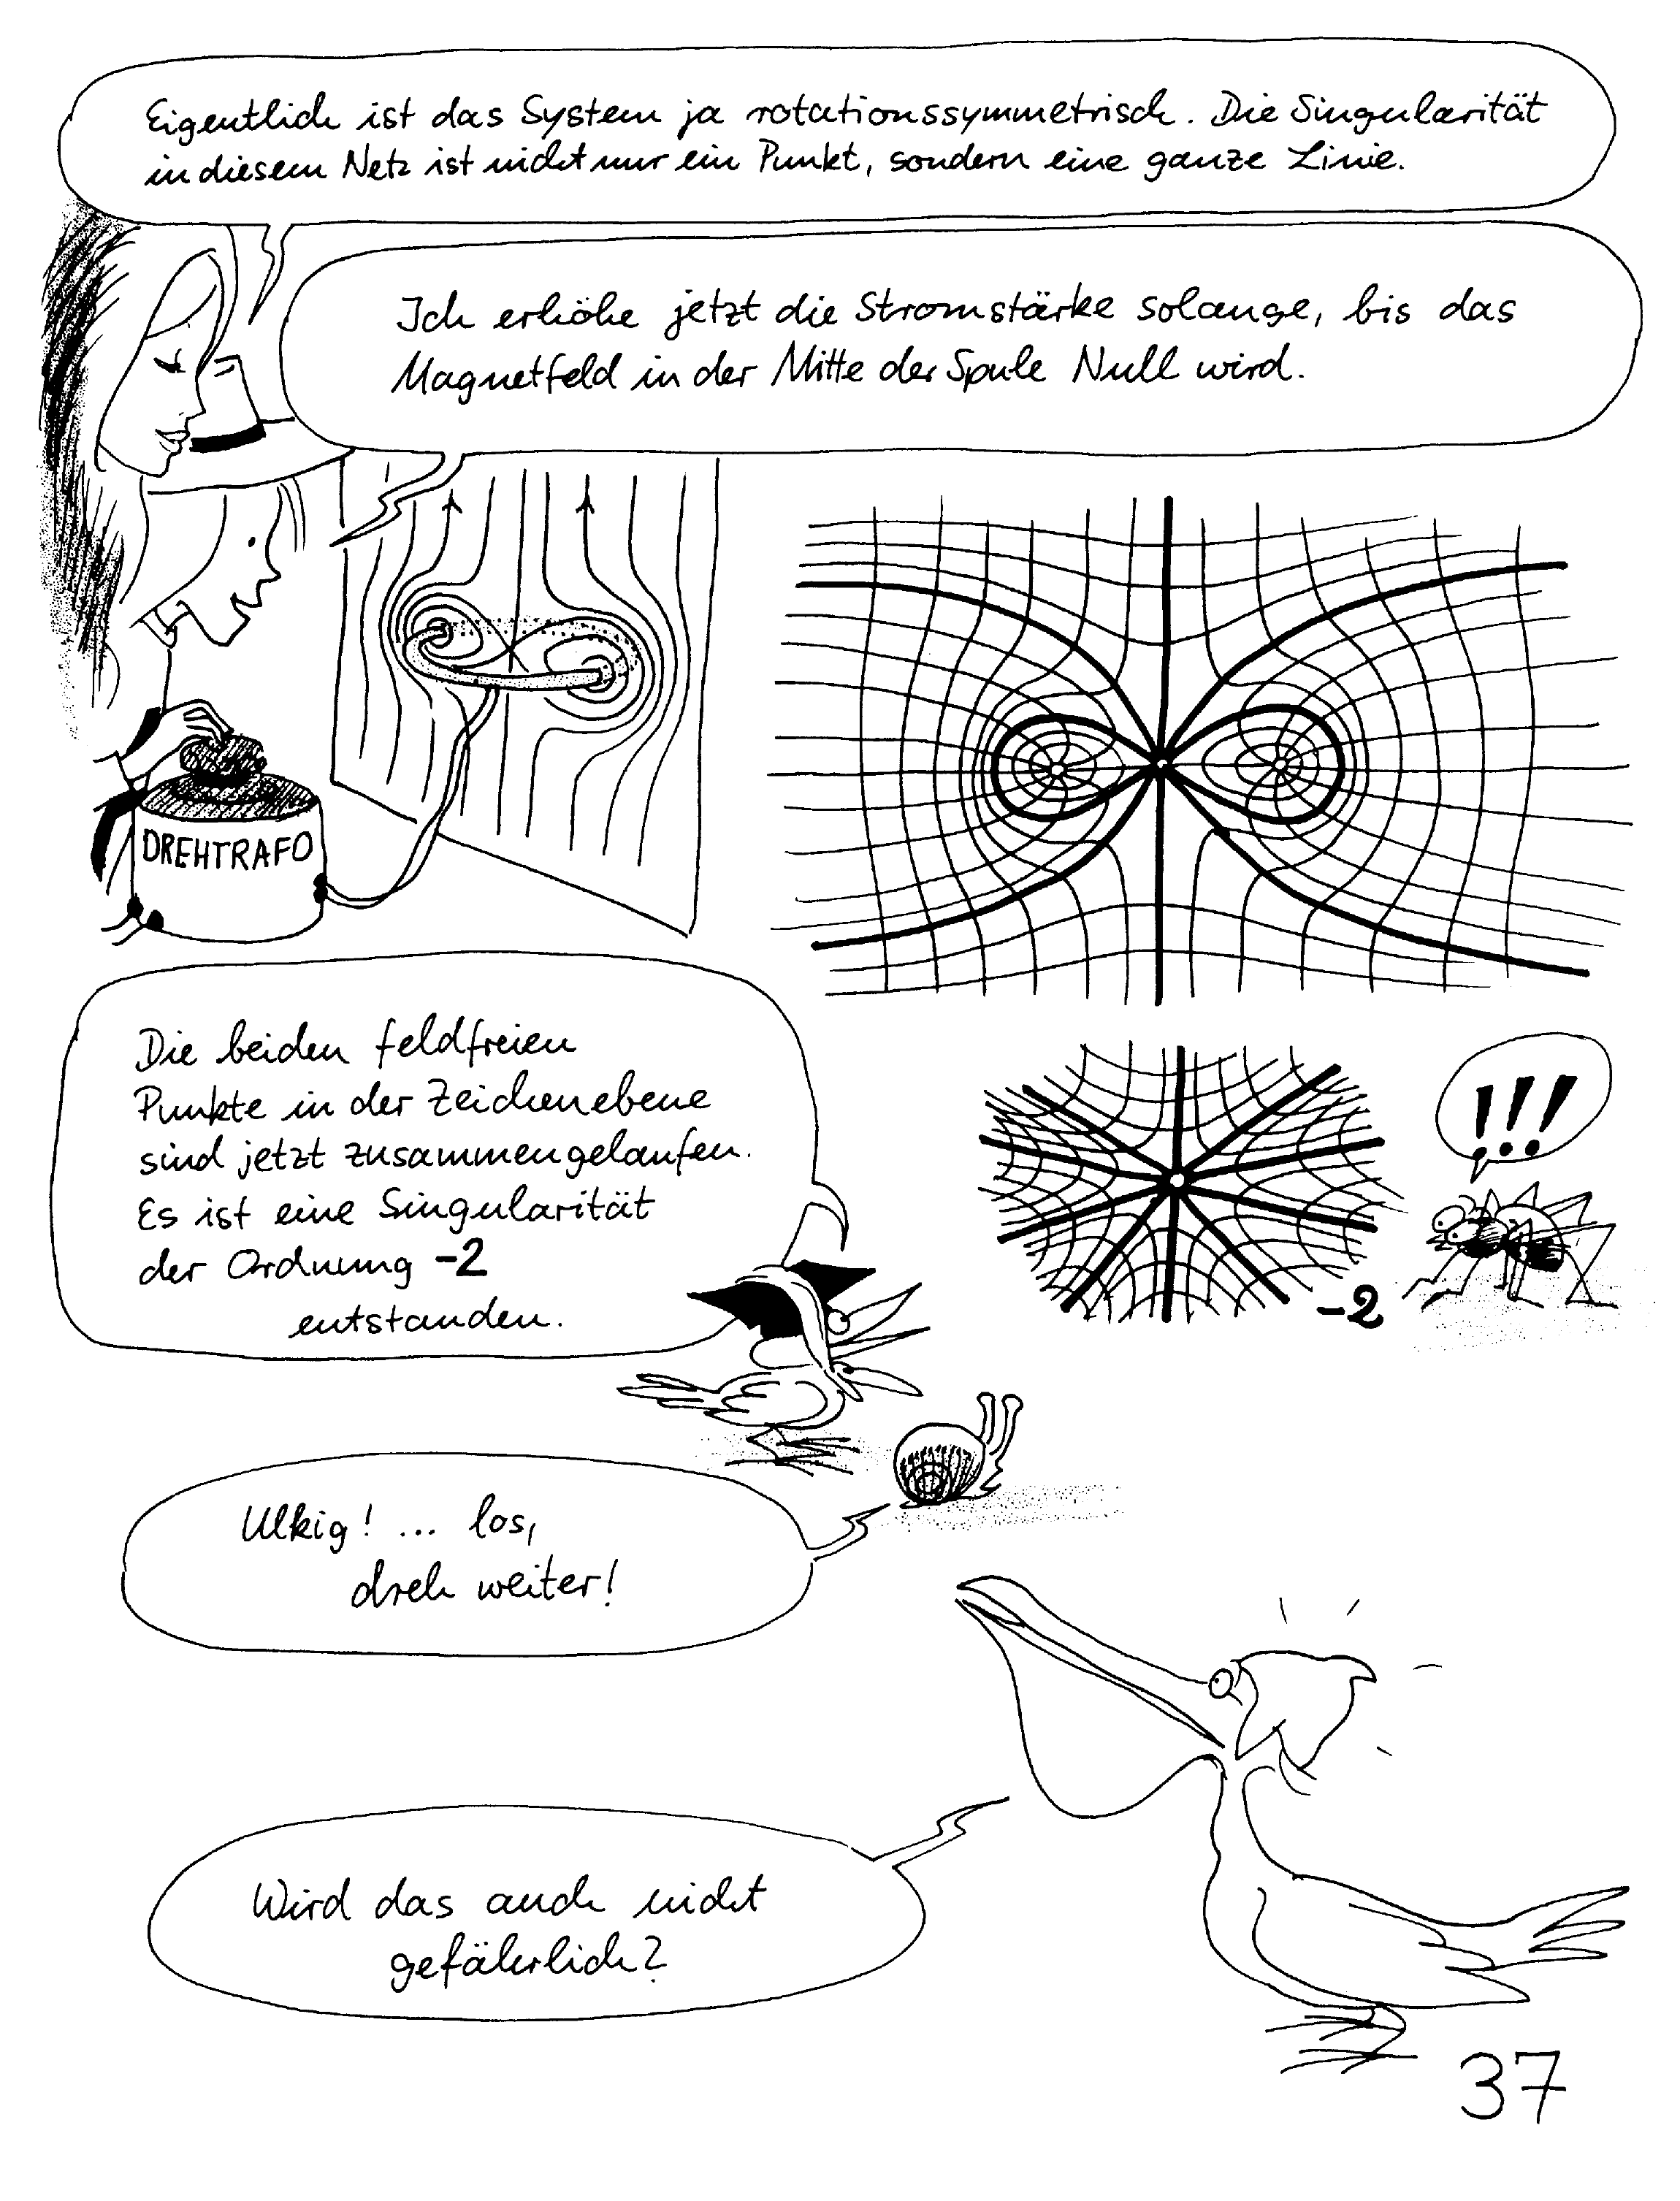 Eigentlich ist das System ja rotationssymmetrisch. Die Singularität
in diesem Netz ist nicht nur ein Punkt, sondern eine ganze Linie.
Ich erhöhe jetzt die Stromstärke solange, bis das
Magnetfeld in der Mitte der Spule Null wird.
DREHTRAFO
Die beiden feldfreien
Punkte in der Zeichenebene
sind jetzt zusammengelaufen.
Es ist eine Singularität
der Ordnung -2
entstanden.
!!!
-2
Ulkig! ... los,
dreh weiter!
Wird das auch nicht
gefährlich?
37